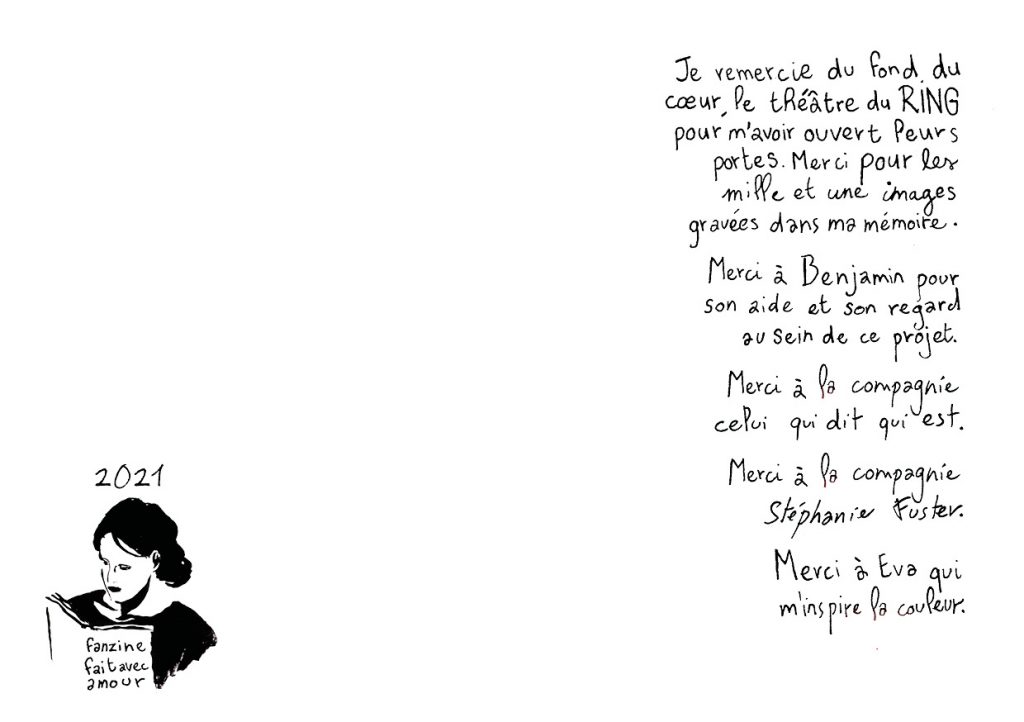 Je remercie du fond du
cœur, le théâtre du RING
pour m'avoir ouvert leurs
portes. Merci pour les
mille et une images
gravées dans ma mémoire.
Merci à Benjamin pour
son aide et son regard
au sein de ce projet.
Merci à la compagnie
celui qui dit qui est.
Merci à la compagnie
Stéphanie Fuster.
Merci à Eva qui
m'inspire la couleur.
2021
fanzine
fait avec
amour